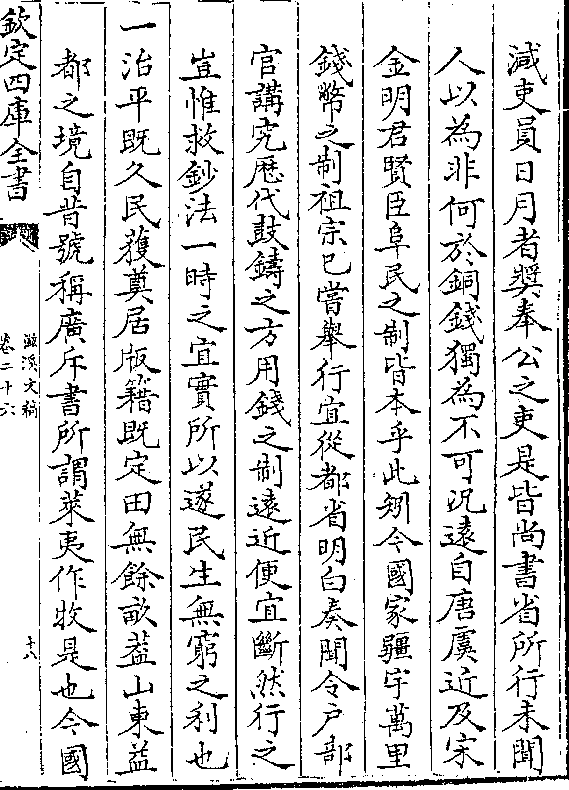 減吏員日月者奬奉公之吏是皆尚書省所行未聞
人以為非何於銅錢獨為不可況遠自唐虞近及宋
金明君賢臣阜民之制皆本乎此矧今國家疆宇萬里
錢幣之制祖宗已嘗舉行宜從都省明白奏聞令户部
官講究歴代鼓鑄之方用錢之制遠近便宜斷然行之
豈惟救鈔法一時之宜實所以遂民生無窮之利也
一治平既久民獲奠居版籍既定田無餘畝葢山東益
都之境自昔號稱廣斥書所謂萊夷作牧是也今國
欽定四庫全書
滋溪文稿
卷二十六
十八